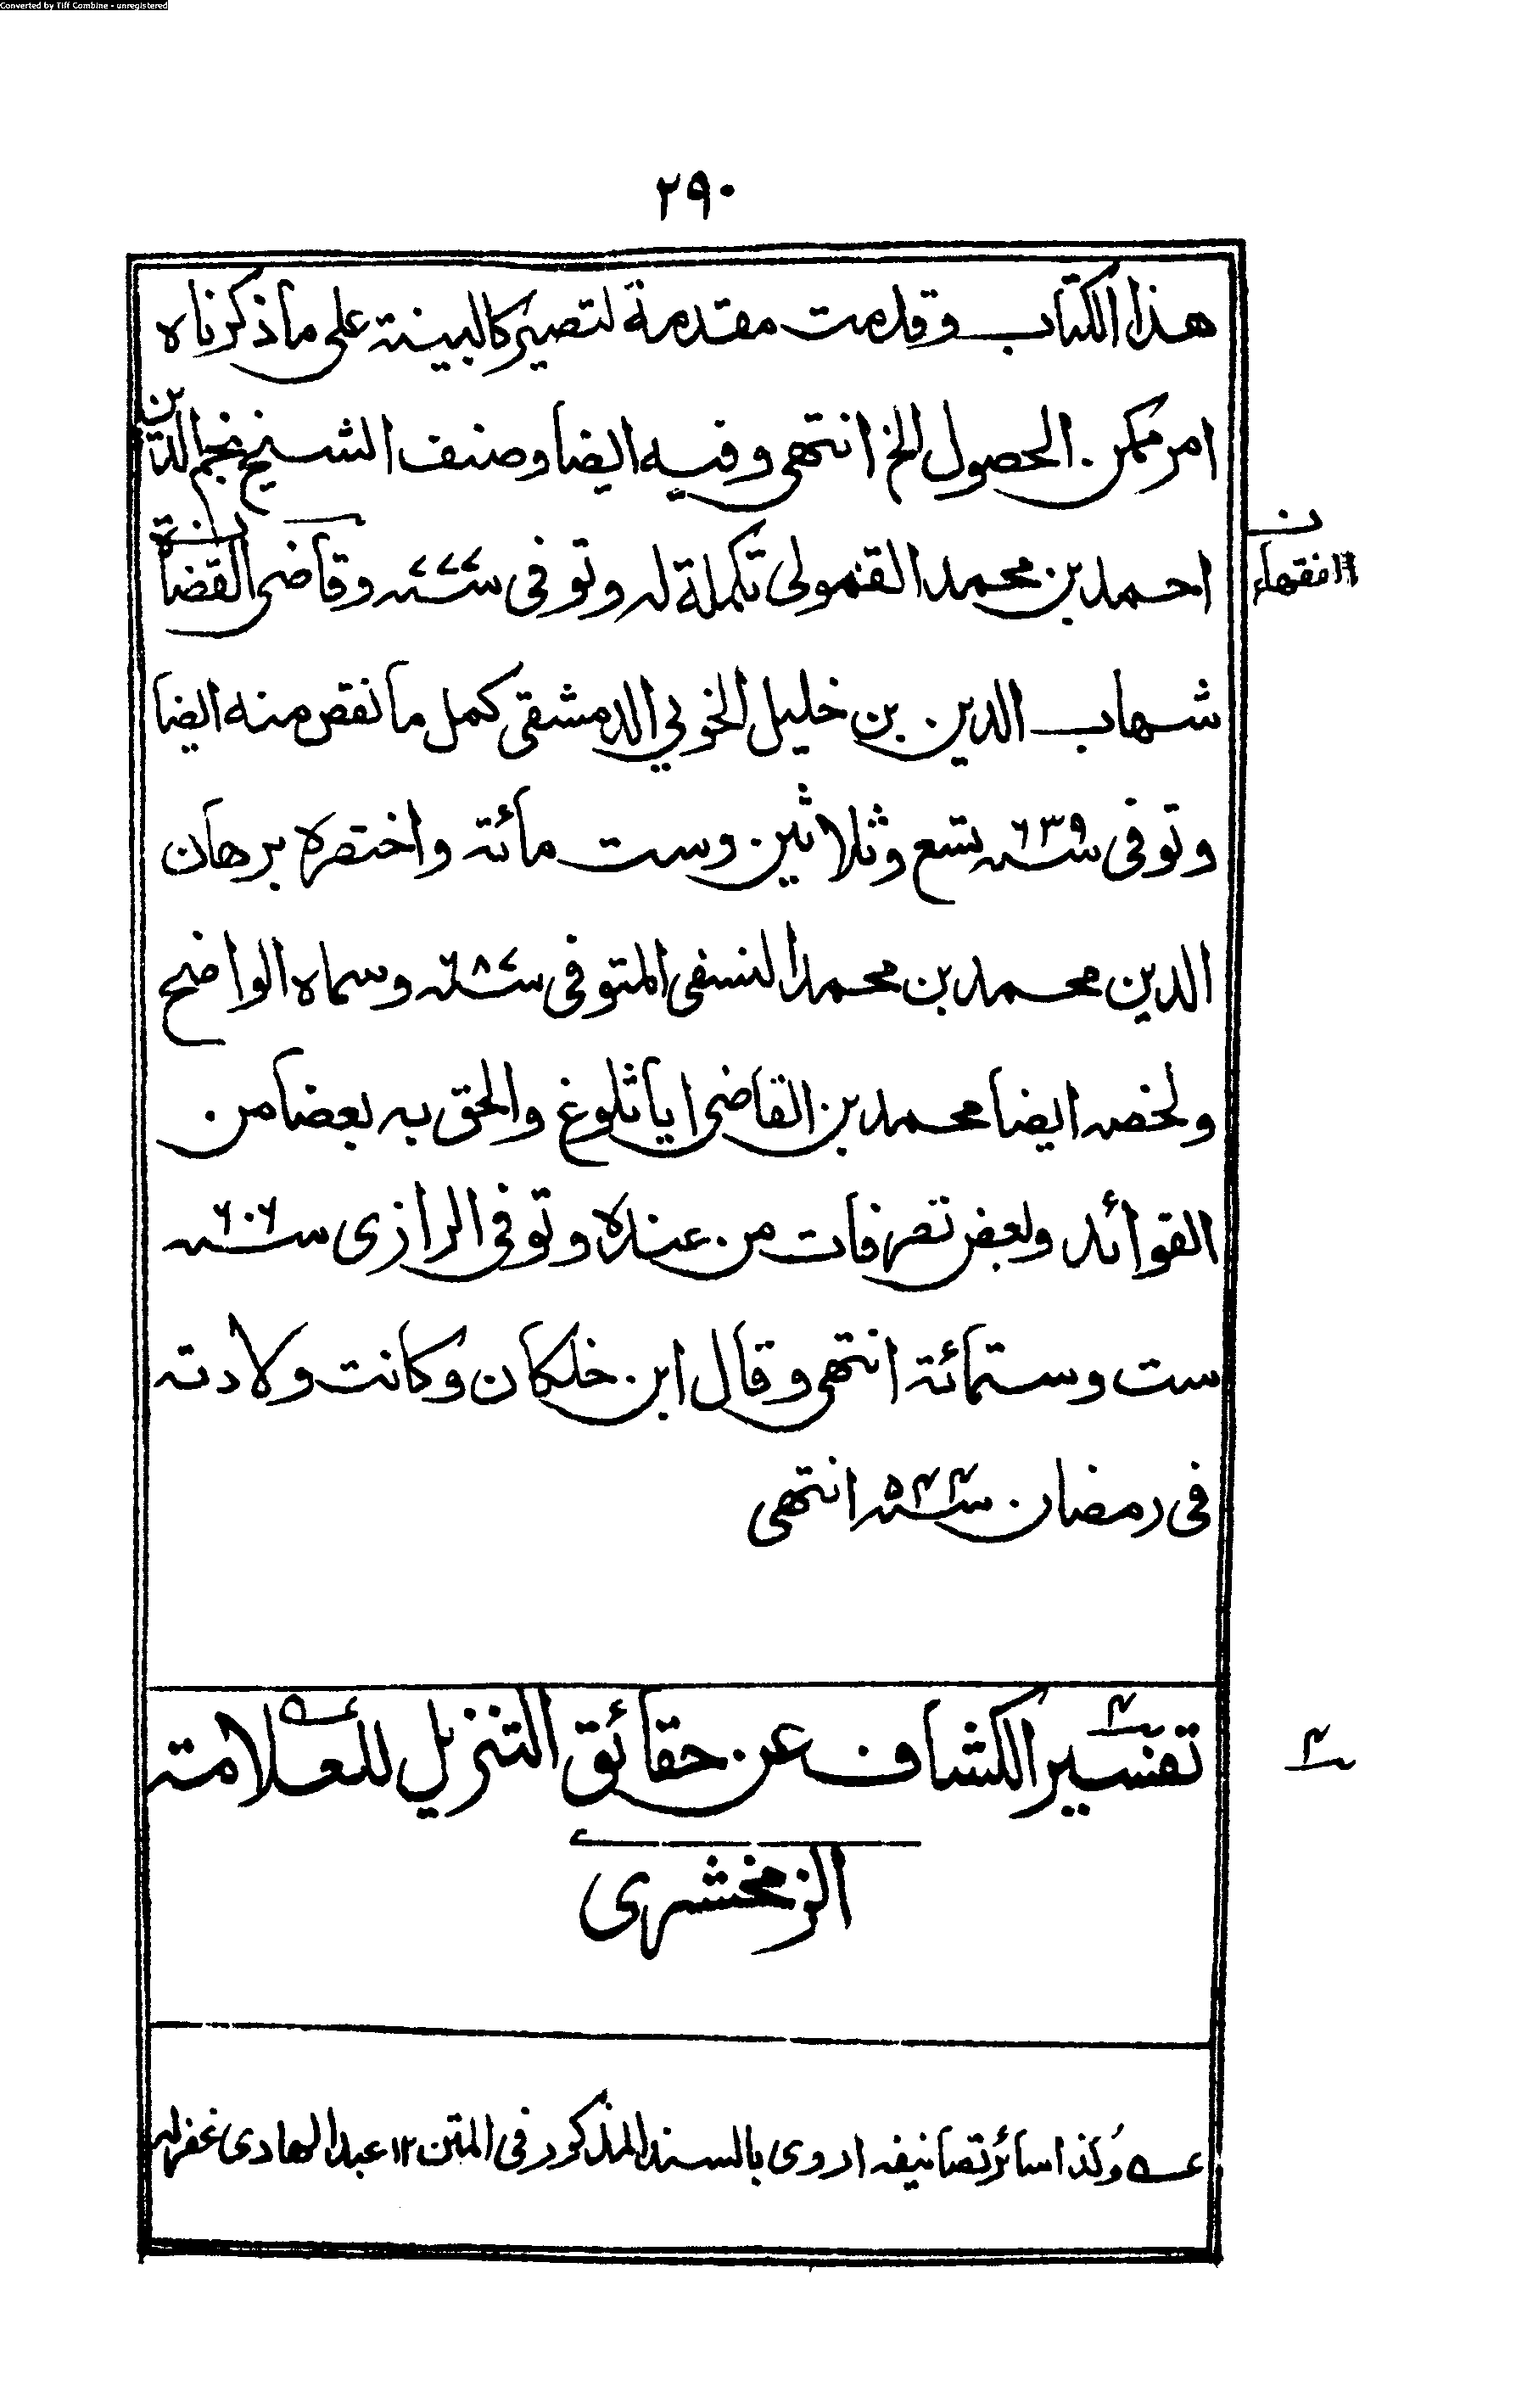 Converted by Tiff Combine - unregistered
٢٩٠
هذا الكتاب وقدمت مقدمة لتصير كالبينة على ما ذكرناه
امر ممكن الحصول الخ انتهى وفيه ايضا وصنف الشيخ نجم الدين
احمد بن محمد القمولى تكملة له وتوفى سنة ٧٧٧ وقاضى القضاة
ن
افقهاء
شهاب الدين بن خليل الخويي الدمشقى كمل ما نقص منه ايضا
وتوفى سنة ٦٣٩ تسع وثلاثين وست مأئة واختصره برهان
الدين محمد بن محمد النسفى المتوفى سنة ٦٨٧ وسماه الواضح
ولخصه ايضا محمد بن القاضى اياثلوغ والحق به بعضا من
الفوائد وبعض تصرفات من عنده وتوفى الرازى سنة ٦٠٦
ست وستمائة انتهى وقال ابن خلكان وكانت ولادته
فى رمضان سنة ٥٤٤ انتهى
تفسير الكشاف عن حقائق التنزيل للعلامة
٤
الزمخشرى
عه وكذا سائر تصانيفه اروى بالسند المذكور فى المتن ١٢ عبد الهادى غفر له